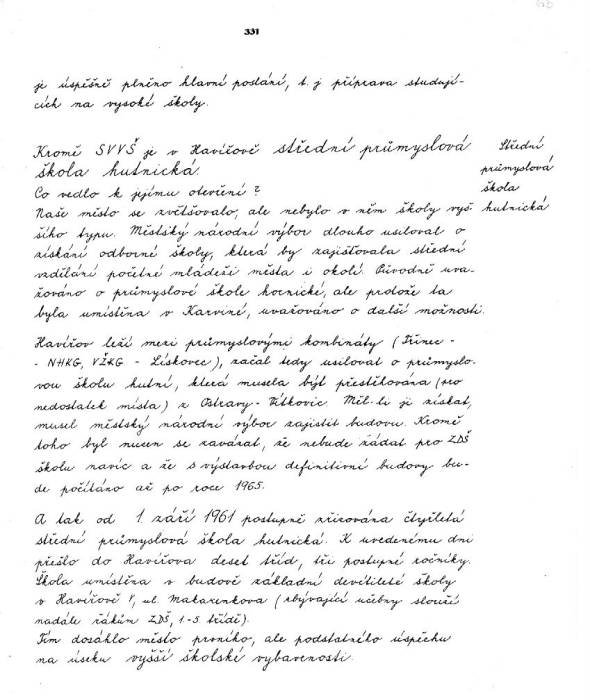 331
je úspěšně plněno hlavní poslání, t. j příprava studují-
cích na vysoké školy.
Kromě SVVŠ je v Havířově střední průmyslová
škola hutnická.
Střední
průmyslová
škola
hutnická
Co vedlo k jejímu otevření?
Naše město se zvětšovalo, ale nebylo v něm školy vyš-
šího typu. Městský národní výbor dlouho usiloval o
získání odborné školy, která by zajišťovala střední
vzdělání početné mládeži města i okolí. Původně uva-
žováno o průmyslové škole hornické, ale protože ta
byla umístěna v Karviné, uvažováno o další možnosti.
Havířov leží mezi průmyslovými kombináty (Třinec -
- NHKG, VŽKG - Lískovec), začal tedy usilovat o průmyslo-
vou školu hutní, která musela být přestěhována (pro
nedostatek místa) z Ostravy-Vítkovic. Měl-li ji získat,
musel městský národní výbor zajistit budovu. Kromě
toho byl nucen se zavázat, že nebude žádat pro ZDŠ
školu navíc a že s výstavbou definitivní budovy bu-
de počítáno až po roce 1965.
A tak od 1. září 1961 postupně zřizována čtyřletá
střední průmyslová škola hutnická. K uvedenému dni
přešlo do Havířova deset tříd, tři postupné ročníky.
Škola umístěna v budově základní devítileté školy
v Havířově V, ul. Makarenkova (zbývající učebny slouží
nadále žákům ZDŠ, 1-5 třídě).
Tím dosáhlo město prvního, ale podstatného úspěchu
na úseku vyšší školské vybavenosti.